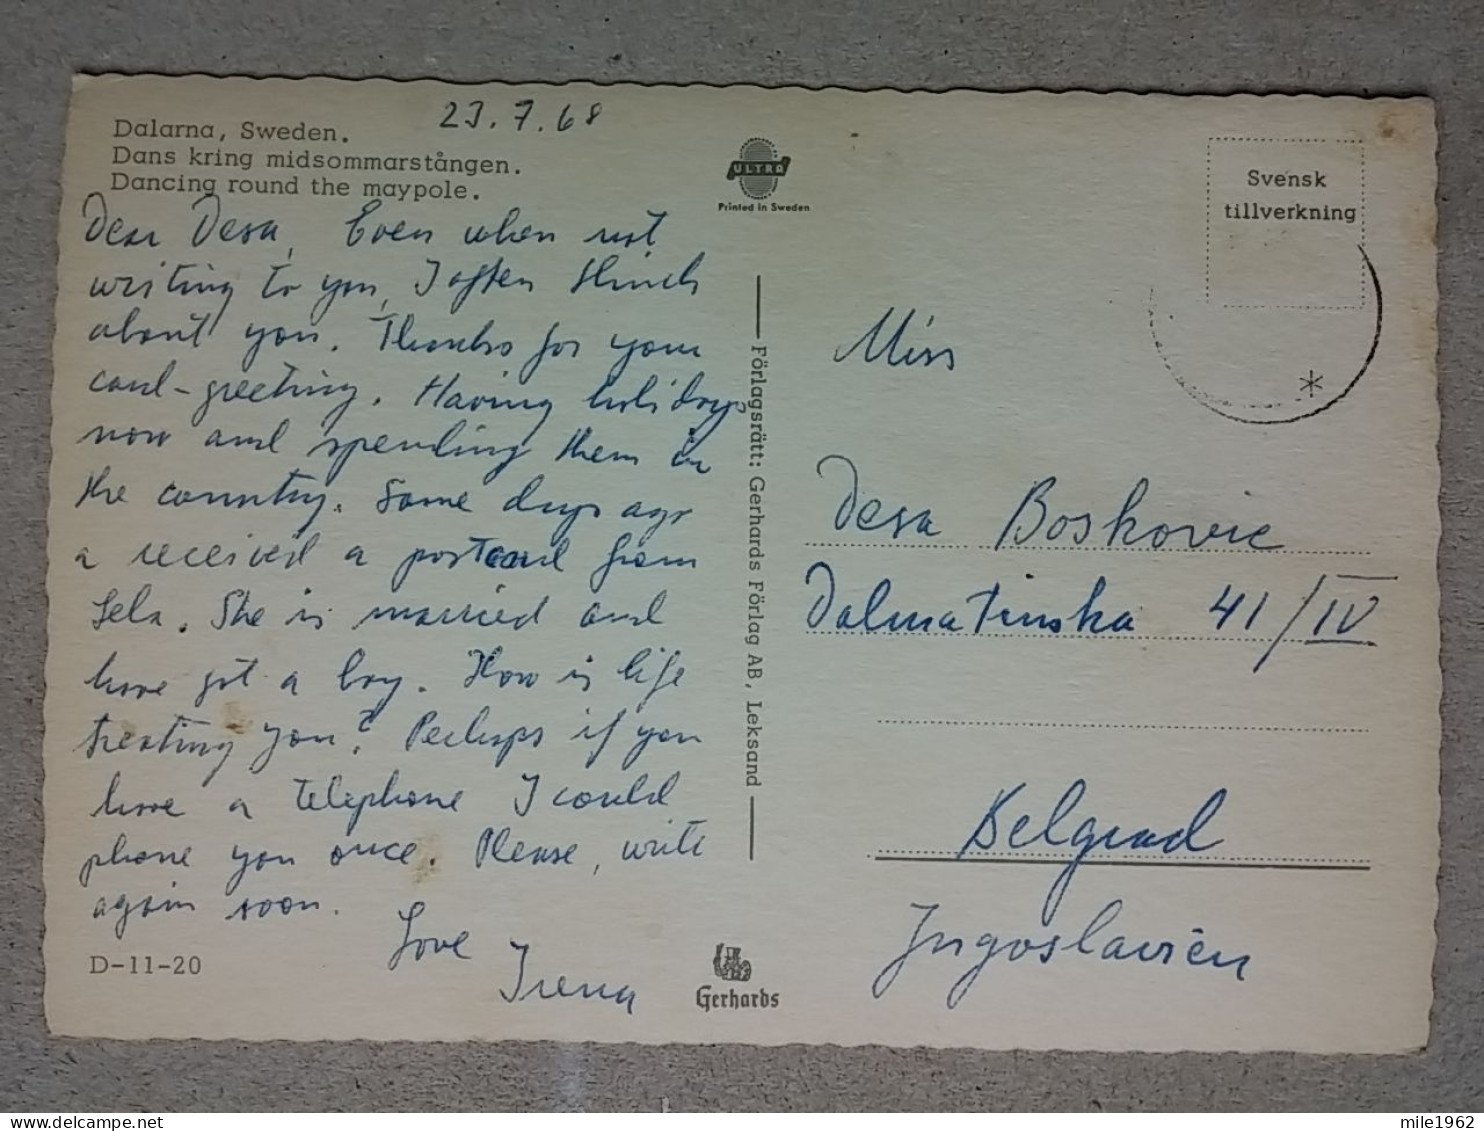 23.7.68
Dalarna, Sweden.
Dans kring midsommarstången.
Dancing round the maypole.
Dear Desa, Even when not
writing to you, I often think
about you. Thanks for your
card-greeting. Having holidays
now and spending them in
the country. Some days ago
a received a postcard from
Lela. She is married and
have got a boy. How is life
treating you? Perhaps if you
have a telephone I could
phone you once. Please, write
again soon.
Love
Irena
D-11-20
ULTRA
Printed in Sweden
Förlagsrätt: Gerhards Förlag AB, Leksand
Gerhards
Svensk
tillverkning
Miss
Desa Boskovic
Dalmatinska 41/IV
Belgrad
Jugoslavien
mile1962